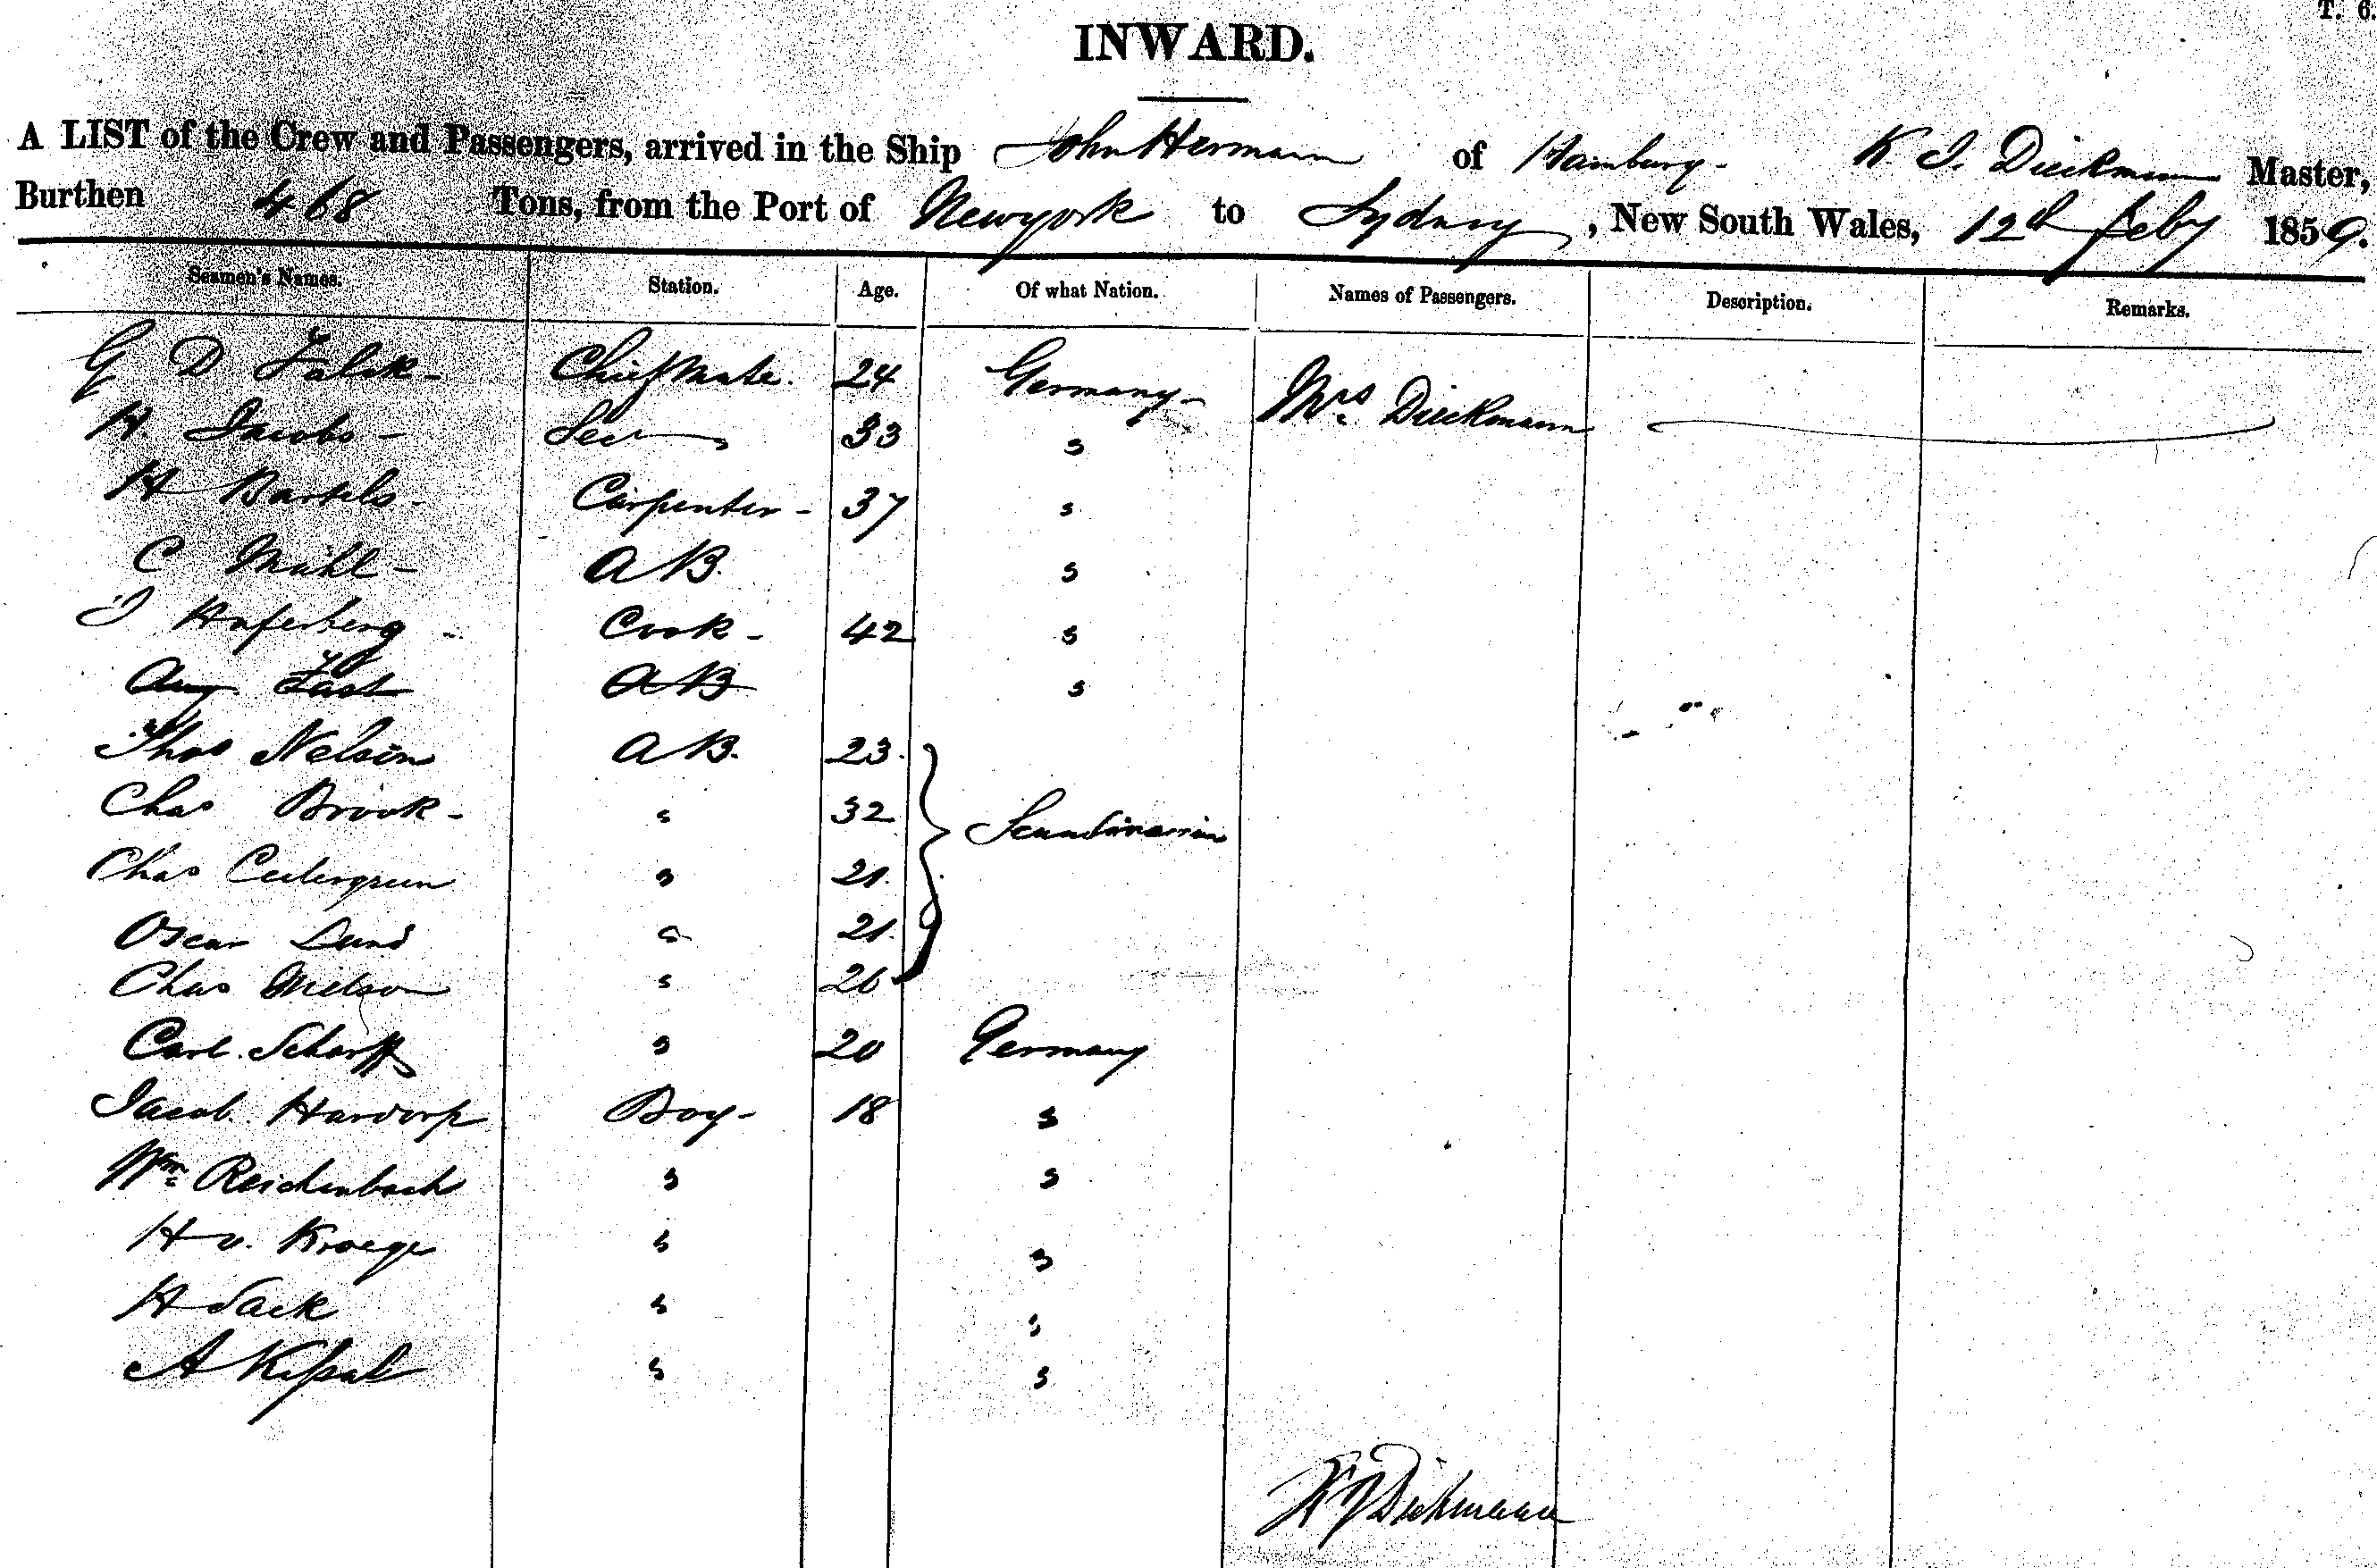 T. 6.
INWARD.
A LIST of the Crew and Passengers, arrived in the Ship John Hermann of Hamburg - K. J. Dieckmann Master,
Burthen 468 Tons, from the Port of Newyork to Sydney, New South Wales, 12th Feby 1859.
Seamen's Names. Station. Age. Of what Nation. Names of Passengers. Description. Remarks.
G D Falck - Chief Mate. 24 Germany - Mrs Dieckmann
H. Jacobs - Sec 33 s
H Bartels - Carpenter - 37 s
C Mühl - A B. s
J Haferberg - Cook - 42 s
Aug Fast A B s
Thos Nelson A B. 23.
Chas Brook - s 32 Scandinavian
Chas Cedergreen s 21.
Oscar Lund s 21.
Chas Nielson s 26
Carl Scharff s 20 Germany
Jacob Hardorp Boy - 18 s
Wm Reichenbach s s
H v. Kroege s s
H Sack s s
A s s
K J Dieckmann